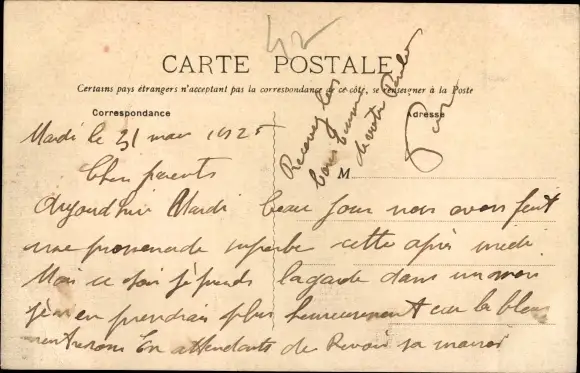 42
CARTE POSTALE
Certains pays étrangers n'acceptant pas la correspondance de ce côté, se renseigner à la Poste
Correspondance
Adresse
M
Recevez les
bons
de votre
Mardi le 31 mars 1925
Cher parents
Aujourd'hui Mardi beau jour nous avons fait
une promenade superbe cette après midi
Mais ce soir je prends la garde dans un mois
j'en prendrai plus heureusement car les bleus
rentrerons En attendants de Revoir sa